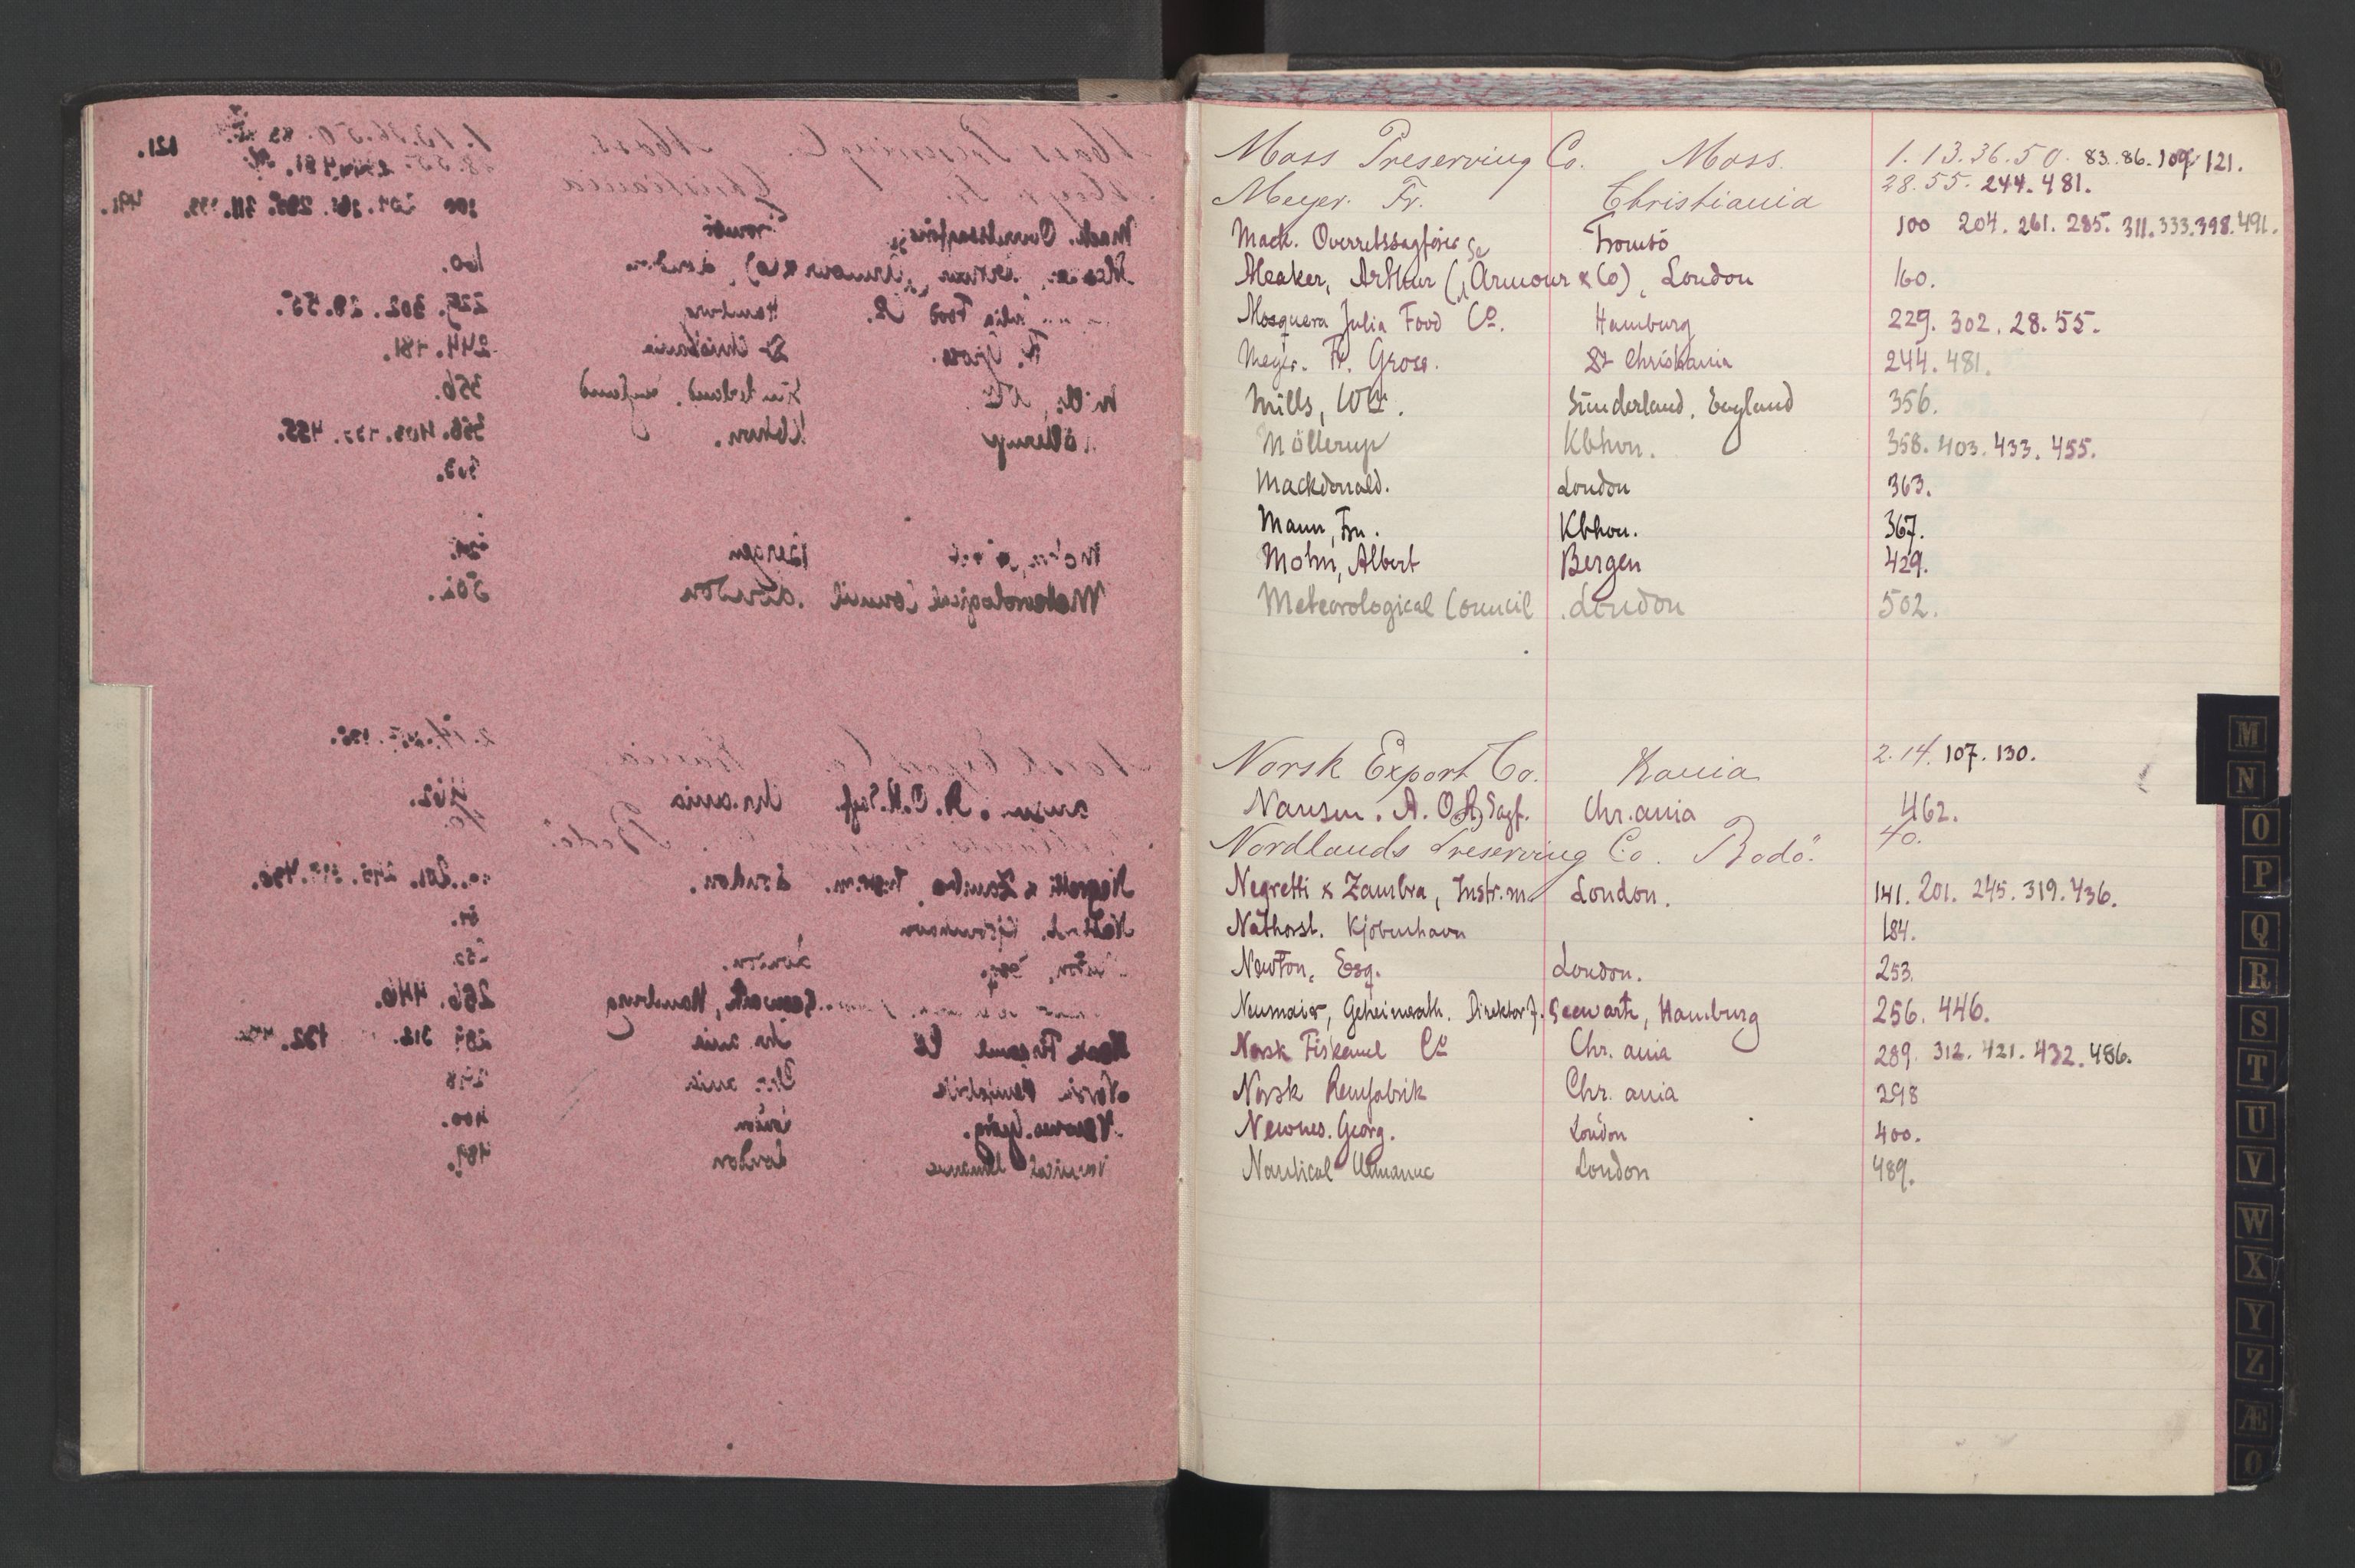 Moss Preserving Co. Moss. 1. 13. 36. 50. 83. 86. 109. 121.
Meyer. Fr. Christiania 28. 55. 244. 481.
Mack. Overretssagfører Tromsö 100 204. 261. 285. 311. 333. 398. 491.
Meaker, Arthur (Armour & Co), London 160.
Mosquera Julia Food Co. Hamburg 229. 302. 28. 55.
Meyer. Fr. Gross. Christiania 244. 481.
Mills, Wm. Sunderland, England 356.
Möllerup Kbhvn. 358. 403. 433. 455.
Mackdonald. London 363.
Mann, Fru. Kbhvn. 367.
Mohn, Albert Bergen 429.
Meteorological Council. London 502.
Norsk Export Co. Kania 2. 14. 107. 130.
Nansen. A. O.R.Sagf. Chr.ania 462.
Nordlands Preserving Co. Bodö. 40.
Negretti & Zambra, Instr.m London. 141. 201. 245. 319. 436.
Nathorst. Kjöbenhavn 184.
Newton, Esq. London. 253.
Neumaier, Geheimerath. Direktor f. Seewarte, Hamburg 256. 446.
Norsk Fiskemel Co Chr. ania 289. 312. 421. 432. 486.
Norsk Remfabrik Chr. ania 298
Newnes. Georg. London 400.
Nautical Almanac London 489.
M
N
O
P
Q
R
S
T
U
V
W
X
Y
Z
Æ
Ø